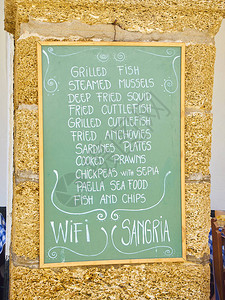 GRILLED FISH
STEAMED MUSSELS
DEEP FRIED SQUID
FRIED CUTTLEFISH
GRILLED CUTTLEFISH
FRIED ANCHOVIES
SARDINES PLATES
COOKED PRAWNS
CHICKPEAS WITH SEPIA
PAELLA SEA FOOD
FISH AND CHIPS
WiFi SANGRIA